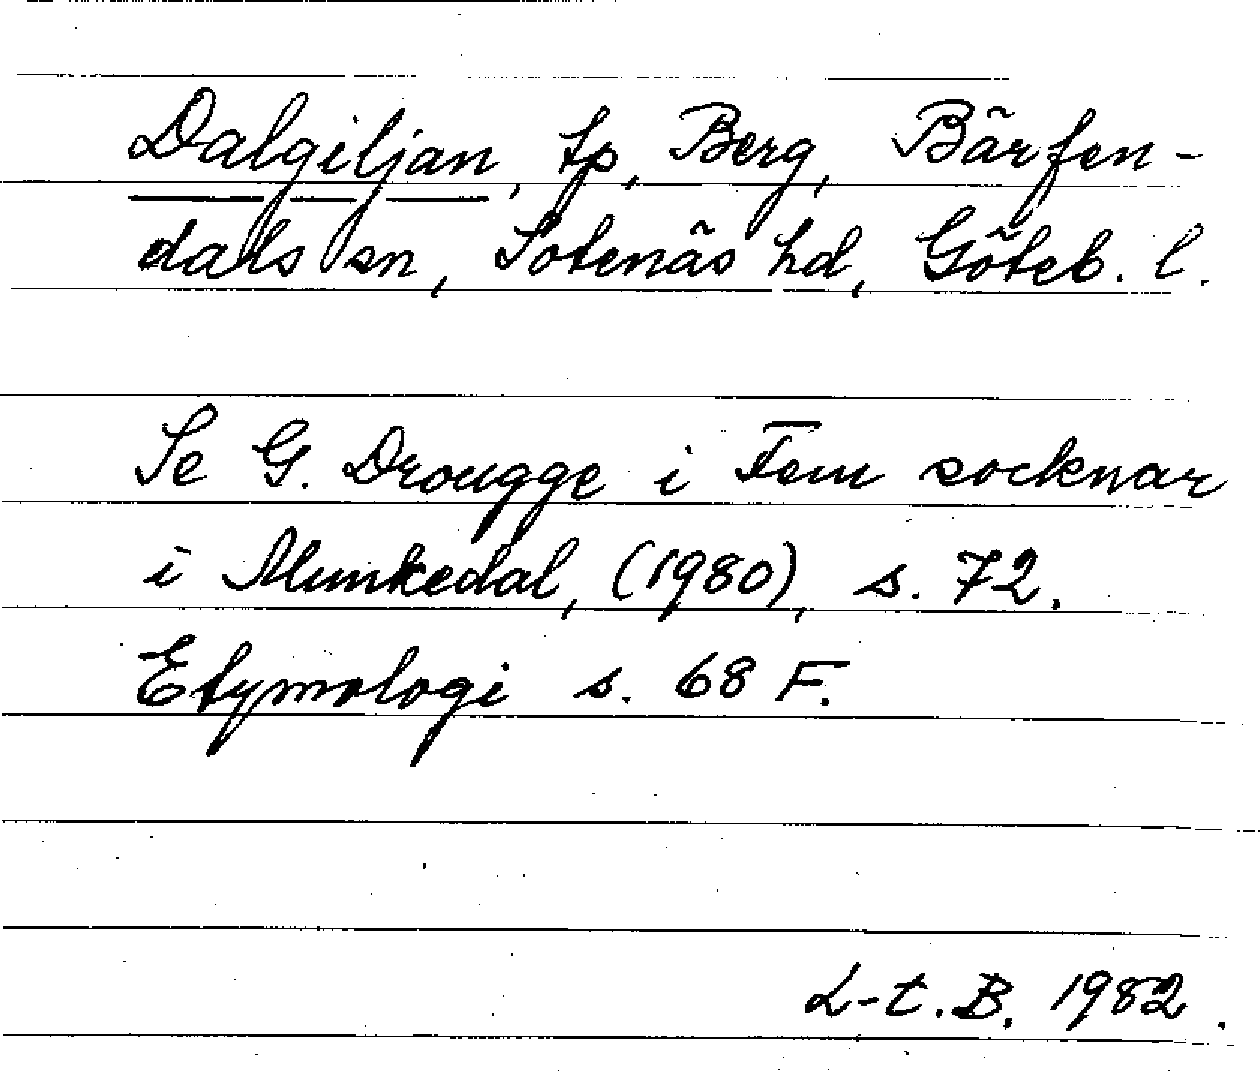 Dalgiljan, tp, Berg, Bärfen-
dals sn, Sotenäs hd, Göteb. l.
Se G. Drougge i Fem socknar
i Munkedal, (1980), s. 72.
Etymologi s. 68 F.
L-t. B. 1982.